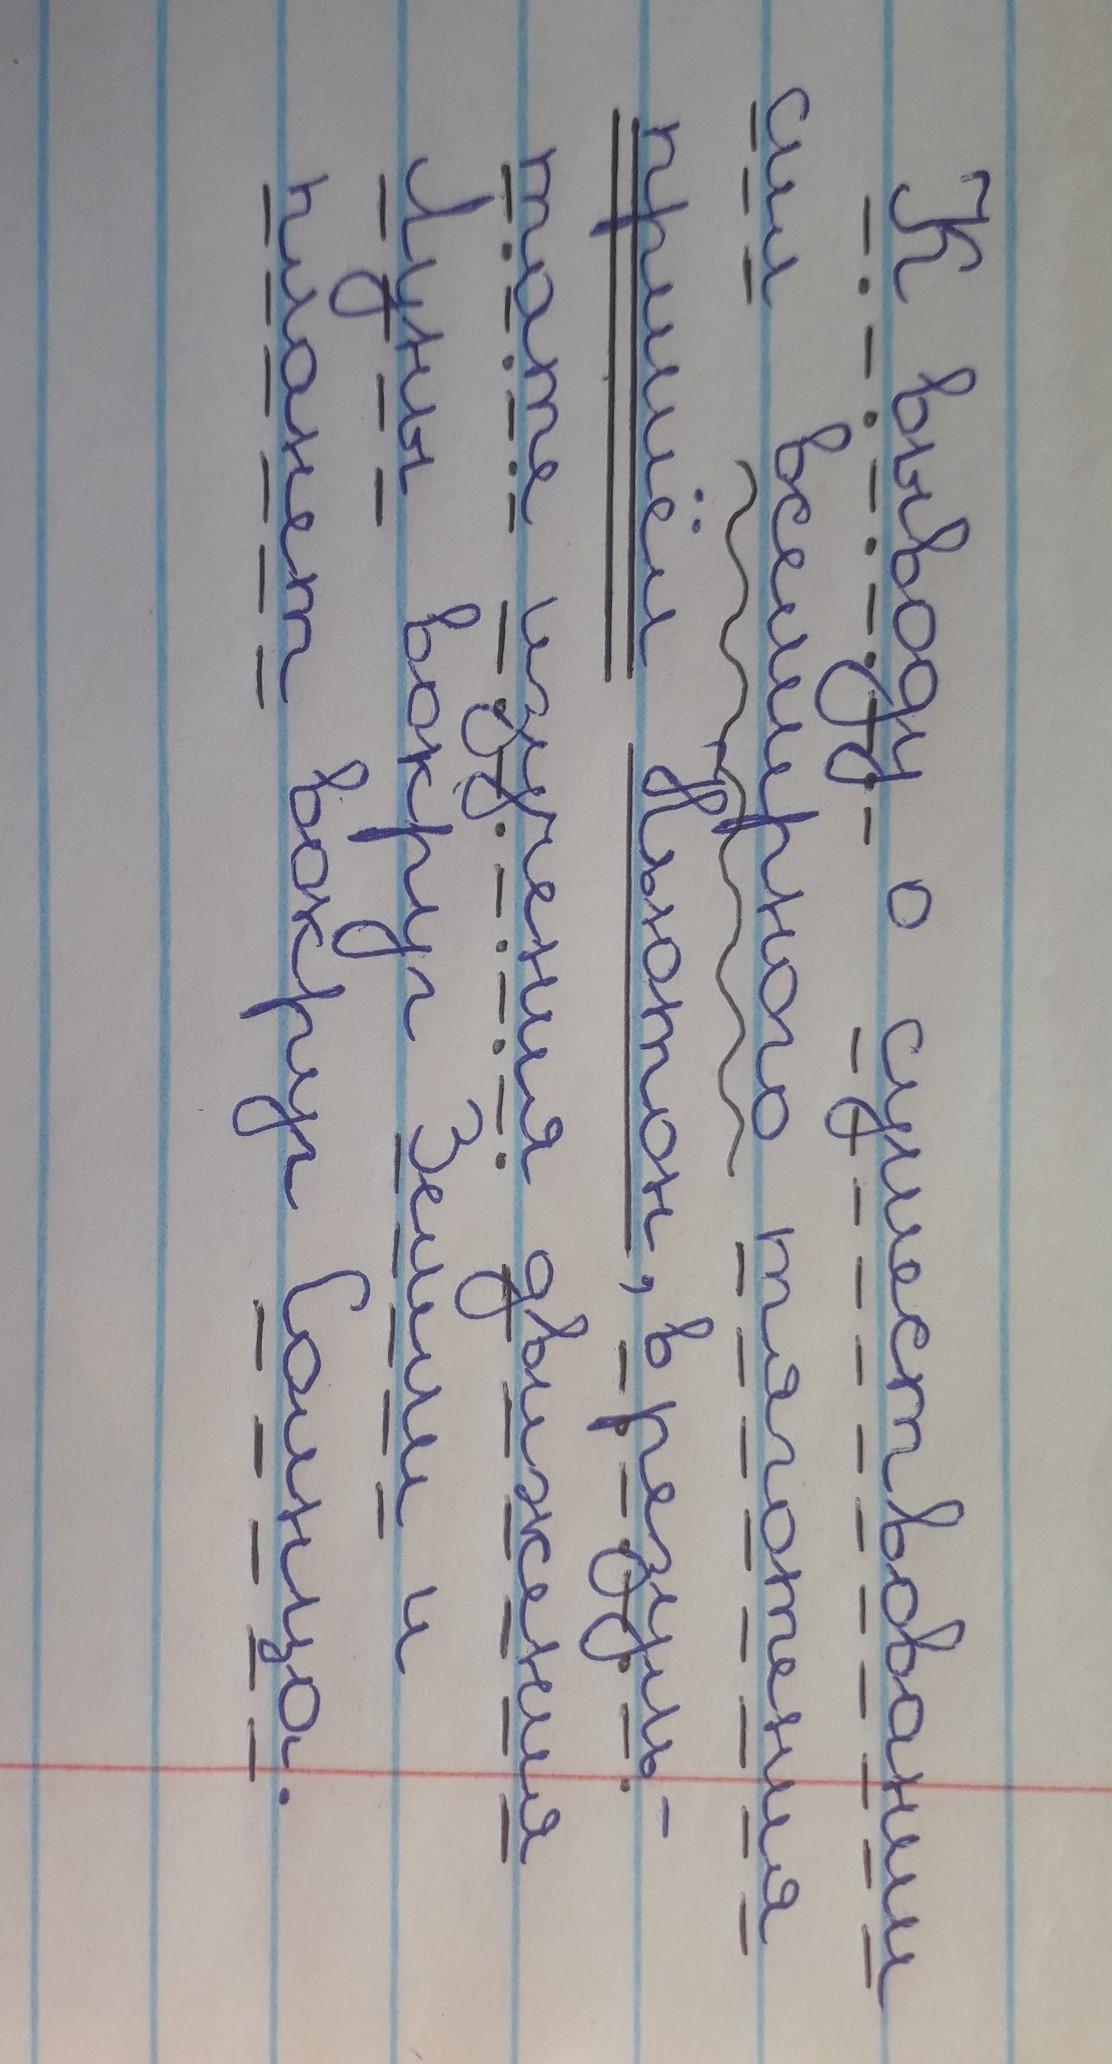 К выводу о существовании
сил всемирного тяготения
пришёл Ньютон, в резуль-
тате изучения движения
Луны вокруг Земли и
планет вокруг Солнца.